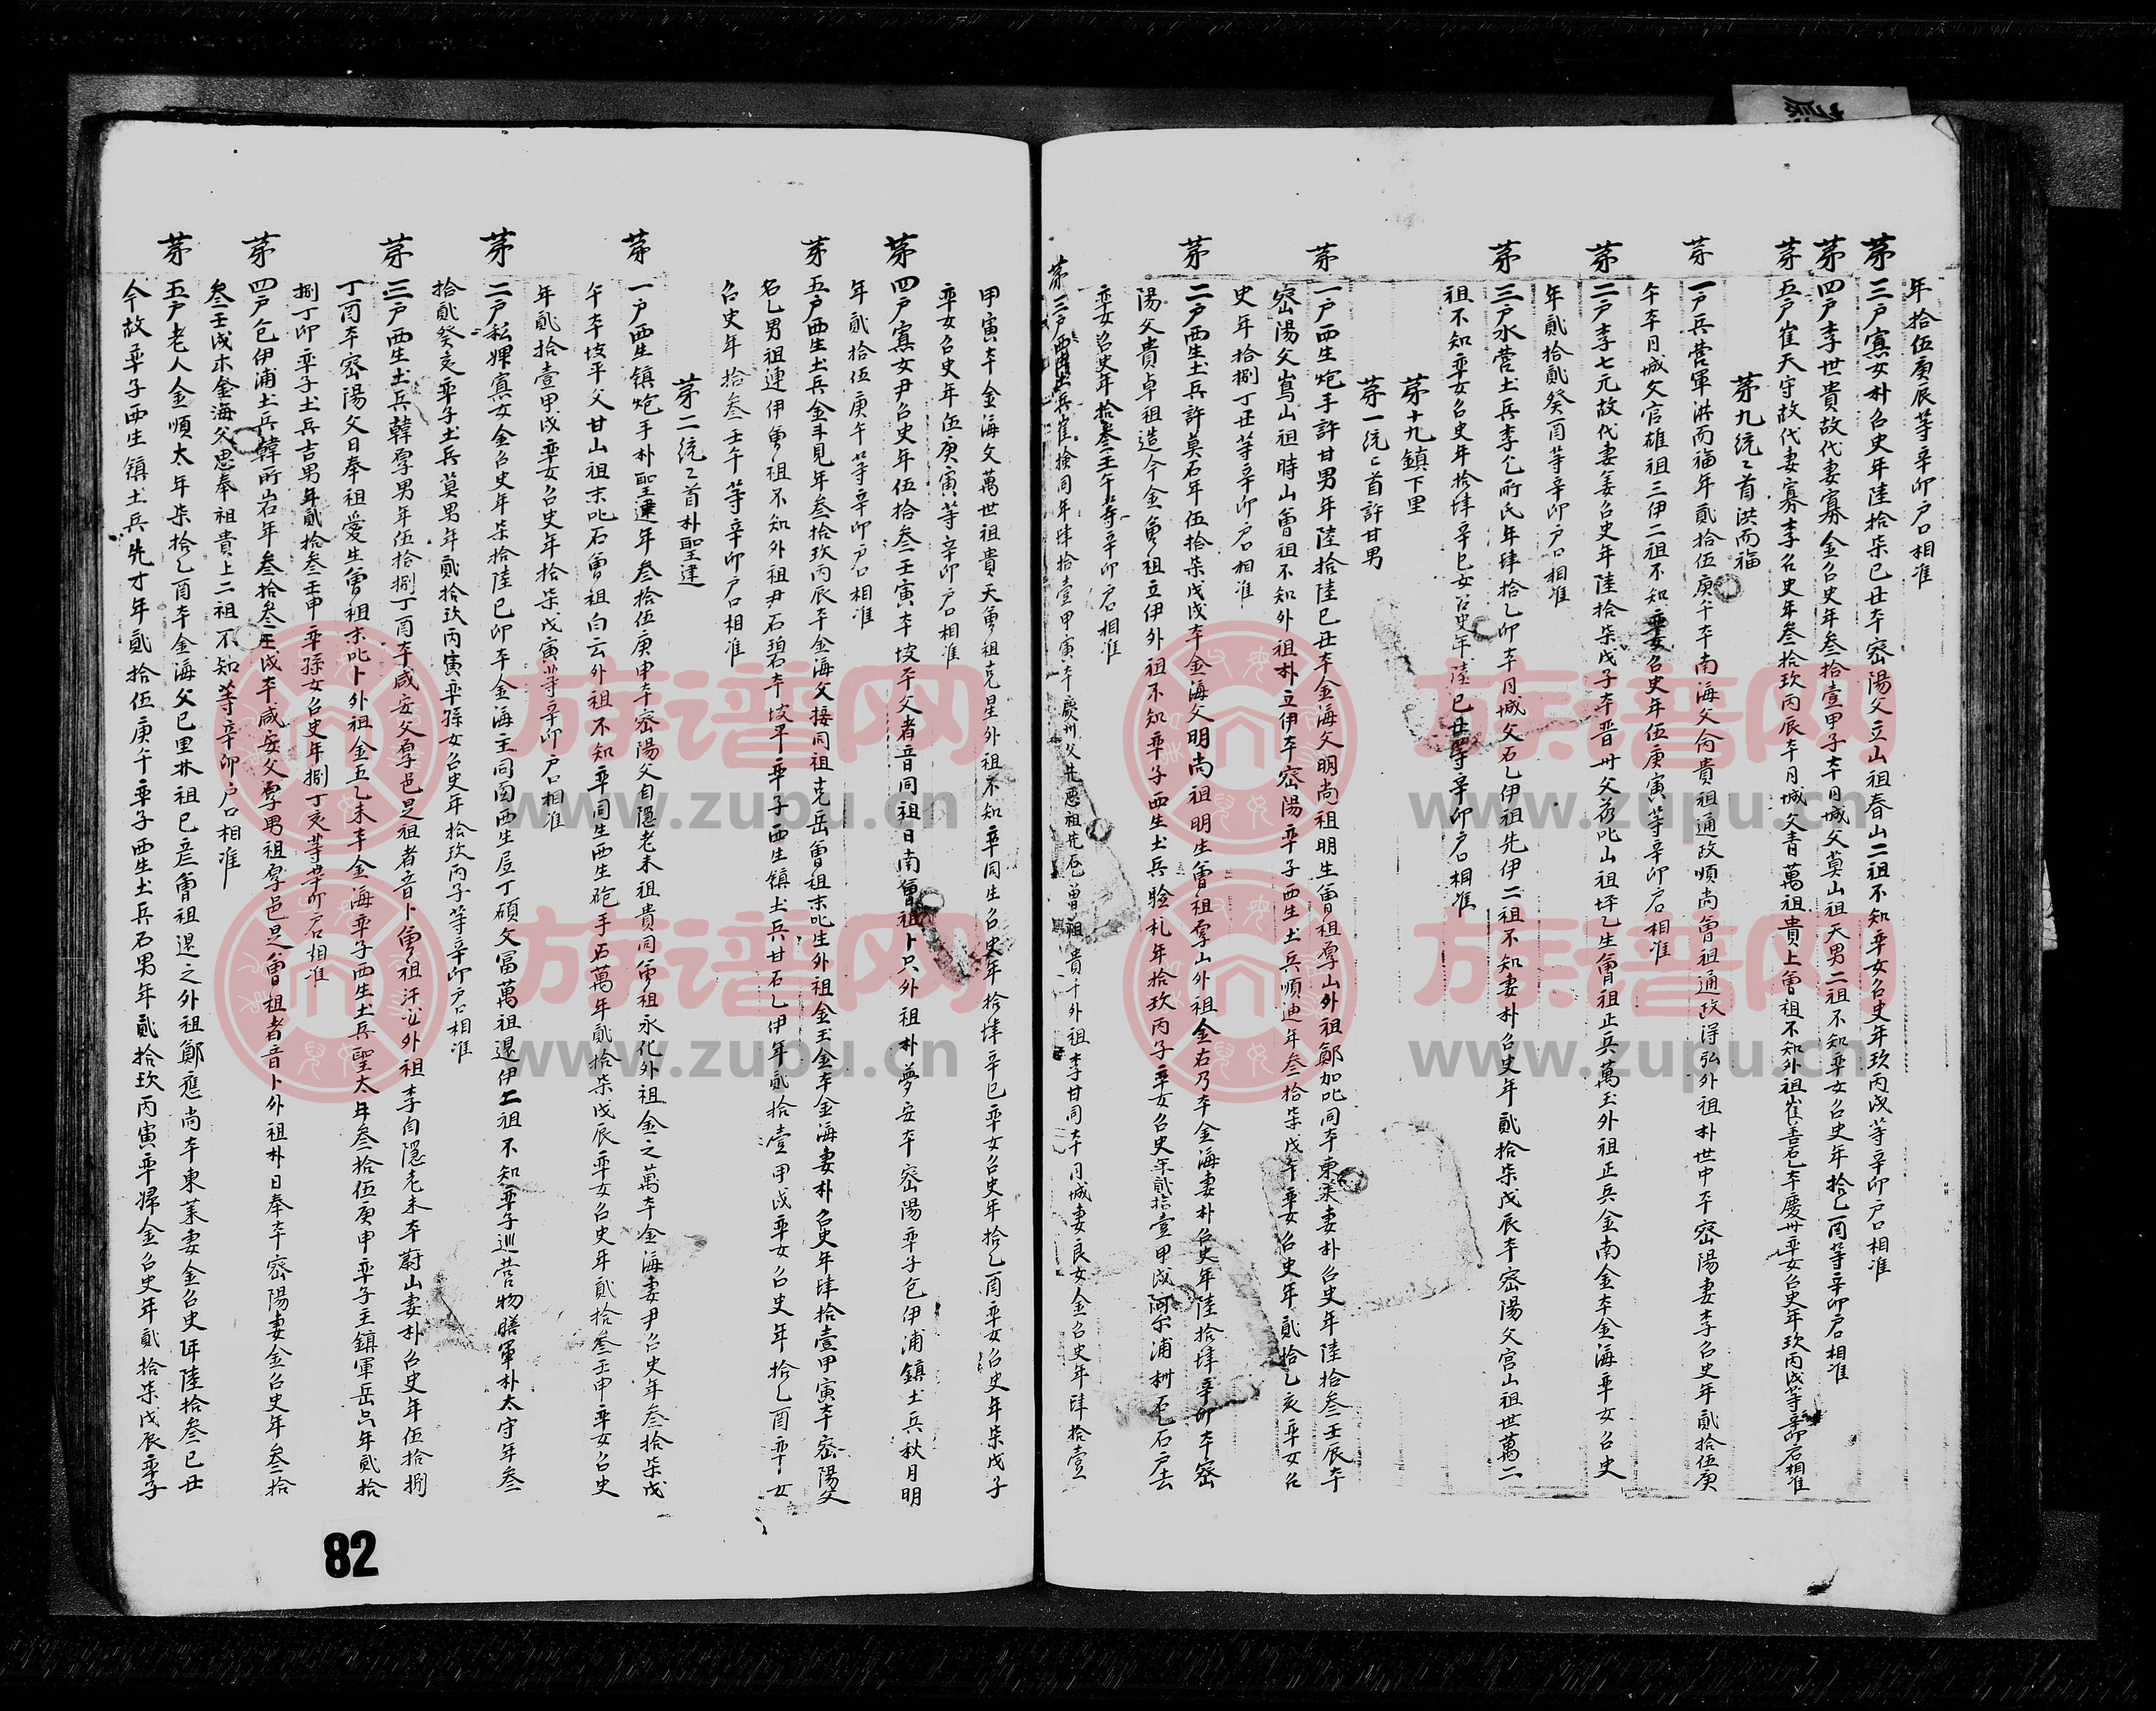 年拾伍庚辰等辛卯戶口相准
茅三戶寡女朴召史年陸拾柒己丑本密陽父立山祖春山二祖不知率女召史年玖丙戌等辛卯戶口相准
茅四戶李世貴故代妻寡金召史年叁拾壹甲子本月城父莫山祖天男二祖不知率女召史年拾乙酉等辛卯戶口相准
茅五戶崔天守故代妻寡李召史年叁拾玖丙辰本月城父青萬祖貴上曾祖不知外祖崔善乭本慶州率女召史年玖丙戌等辛卯戶口相准
茅九統統首洪而福
茅一戶兵營軍洪而福年貳拾伍庚午本南海父俞貴祖通政順尚曾祖通政得弘外祖朴世中本密陽妻李召史年貳拾伍庚
午本月城父官雄祖三伊二祖不知率女召史年伍庚寅等辛卯戶口相准
茅二戶李七元故代妻姜召史年陸拾柒戊子本晋州父叱山祖坪乙生曾祖正兵萬玉外祖正兵金南金本金海率女召史
年貳拾貳癸酉等辛卯戶口相准
茅三戶水營土兵李乞所氏年肆拾乙卯本月城父石乙伊祖先伊二祖不知妻朴召史年貳拾柒戊辰本密陽父宮山祖世萬二
祖不知率女召史年拾肆辛巳女召史年陸己丑等辛卯戶口相准
茅十九鎮下里
茅一統統首許甘男
茅一戶西生炮手許甘男年陸拾陸己丑本金海父明尚祖明生曾祖厚山外祖鄭加叱同本東萊妻朴召史年陸拾叁壬辰本
密陽父嵩山祖時山曾祖不知外祖朴立伊本密陽率子西生土兵順迪年叁拾柒戊午率女召史年貳拾乙亥率女召
史年拾捌丁丑等辛卯戶口相准
茅二戶西生土兵許莫石年伍拾柒戊戌本金海父明尚祖明生曾祖厚山外祖金右乃本金海妻朴召史年陸拾肆辛卯本密
陽父貴卓祖造今金曾祖立伊外祖不知率子西生土兵驗札年拾玖丙子率女召史年貳拾壹甲戌阿尔浦村石乙石戶去
率女召史年拾叁壬午等辛卯戶口相准
茅三戶西生土兵崔儉同年肆拾壹甲寅本慶州父先惡祖先石曾祖貴千外祖李甘同本月城妻良女金召史年肆拾壹
甲寅本金海父萬世祖貴天曾祖克星外祖不知率同生召史年拾肆辛巳率女召史年拾乙酉率女召史年柒戊子
率女召史年伍庚寅等辛卯戶口相准
茅四戶寡女尹召史年伍拾叁壬寅本坡平父者音同祖日南曾祖卜只外祖朴夢安本密陽率子包伊浦鎮土兵秋月明
年貳拾伍庚午等辛卯戶口相准
茅五戶西生土兵金斗見年叁拾玖丙辰本金海父接同祖克岳曾祖末叱生外祖金玉金本金海妻朴召史年肆拾壹甲寅本密陽父
名乙男祖連伊曾祖不知外祖尹石碧本坡平率子西生鎮土兵甘石乙伊年貳拾壹甲戌率女召史年拾乙酉率女
召史年拾叁壬午等辛卯戶口相准
茅二統統首朴聖達
茅一戶西生鎮炮手朴聖達年叁拾伍庚申本密陽父自隱老未祖貴同曾祖永化外祖金之萬本金海妻尹召史年叁拾柒戊
午本坡平父甘山祖末叱石曾祖白云外祖不知率同生西生砲手石萬年貳拾柒戊辰率女召史年貳拾叁壬申率女召史
年貳拾壹甲戌率女召史年拾柒戊寅等辛卯戶口相准
茅二戶私婢寡女金召史年柒拾陸己卯本金海主同面西生居丁碩父冨萬祖還伊二祖不知率子巡營物膳軍朴太守年叁
拾貳癸亥率子土兵莫男年貳拾玖丙寅率孫女召史年拾玖丙子等辛卯戶口相准
茅三戶西生土兵韓厚男年伍拾捌丁酉本咸安父厚邑是祖者音卜曾祖汗必外祖李自隱老未本蔚山妻朴召史年伍拾捌
丁酉本密陽父日奉祖愛生曾祖末叱卜外祖金五乙未本金海率子西生土兵聖太年叁拾伍庚申率子主鎮軍岳只年貳拾
捌丁卯率子土兵吉男年貳拾叁壬申率孫女召史年捌丁亥等辛卯戶口相准
茅四戶包伊浦土兵韓所岩年叁拾叁壬戌本咸安父厚男祖厚邑是曾祖者音卜外祖朴日奉本密陽妻金召史年叁拾
叁壬戌本金海父思奉祖貴上二祖不知等辛卯戶口相准
茅五戶老人金順太年柒拾乙酉本金海父已里林祖已彦曾祖退之外祖鄭應尚本東萊妻金召史年陸拾叁己丑
今故率子西生鎮土兵先才年貳拾伍庚午率子西生土兵石男年貳拾玖丙寅率婦金召史年貳拾柒戊辰率子
82
族谱网
www.zupu.cn
族谱网
www.zupu.cn
族谱网
www.zupu.cn
族谱网
www.zupu.cn